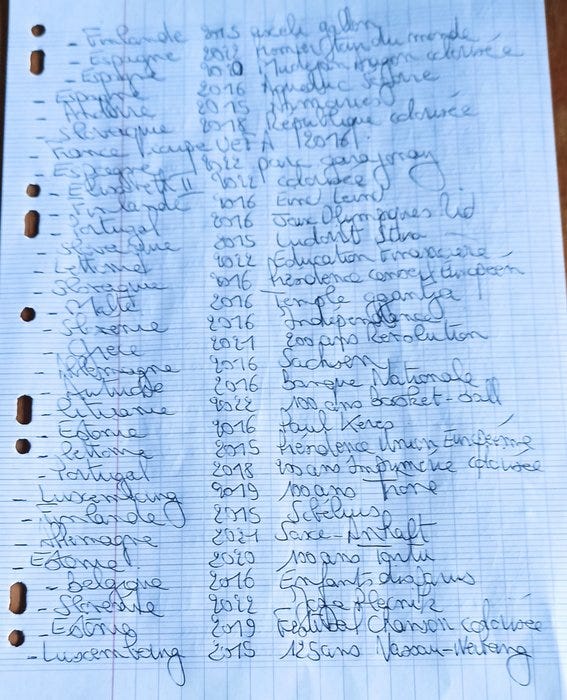 - Finlande 2015 axeli gallon
- Espagne 2022 1er tour du monde
- Espagne 2020 Mudejar Aragon colorisée
- Espagne 2016 Aqueduc Ségovie
- Andorre 2015 
- Slovaquie 2018 République colorisée
- France coupe UEFA (2016)
- Espagne 2022 parc garajonay
- Elisabeth II 2022 colorisée
- Finlande 2016 Eino Leino
- Portugal 2016 Jeux Olympiques Rio
- Slovaquie 2015 Ludovit Stur
- Lettonie 2022 Education Financière
- Slovaquie 2016 Présidence conseil Européen
- Malte 2016 Temple ggantija
- Slovénie 2016 Indépendence
- Grèce 2021 200 ans Révolution
- Allemagne 2016 Sachsen
- Autriche 2016 Banque Nationale
- Lituanie 2022 100 ans basket-ball
- Estonie 2016 Paul Keres
- Lettonie 2015 Présidence Union Européenne
- Portugal 2018 imprimerie colorisée
- Luxembourg 2019 100 ans Trone
- Finlande 2015 Sibelius
- Allemagne 2021 Saxe-Anhalt
- Estonie 2020 100 ans Tartu
- Belgique 2016 Enfants disparus
- Slovénie 2022 Joze Plecnik
- Estonie 2019 Festival Chanson colorisée
- Luxembourg 2015 125 ans Nassau-Weilburg